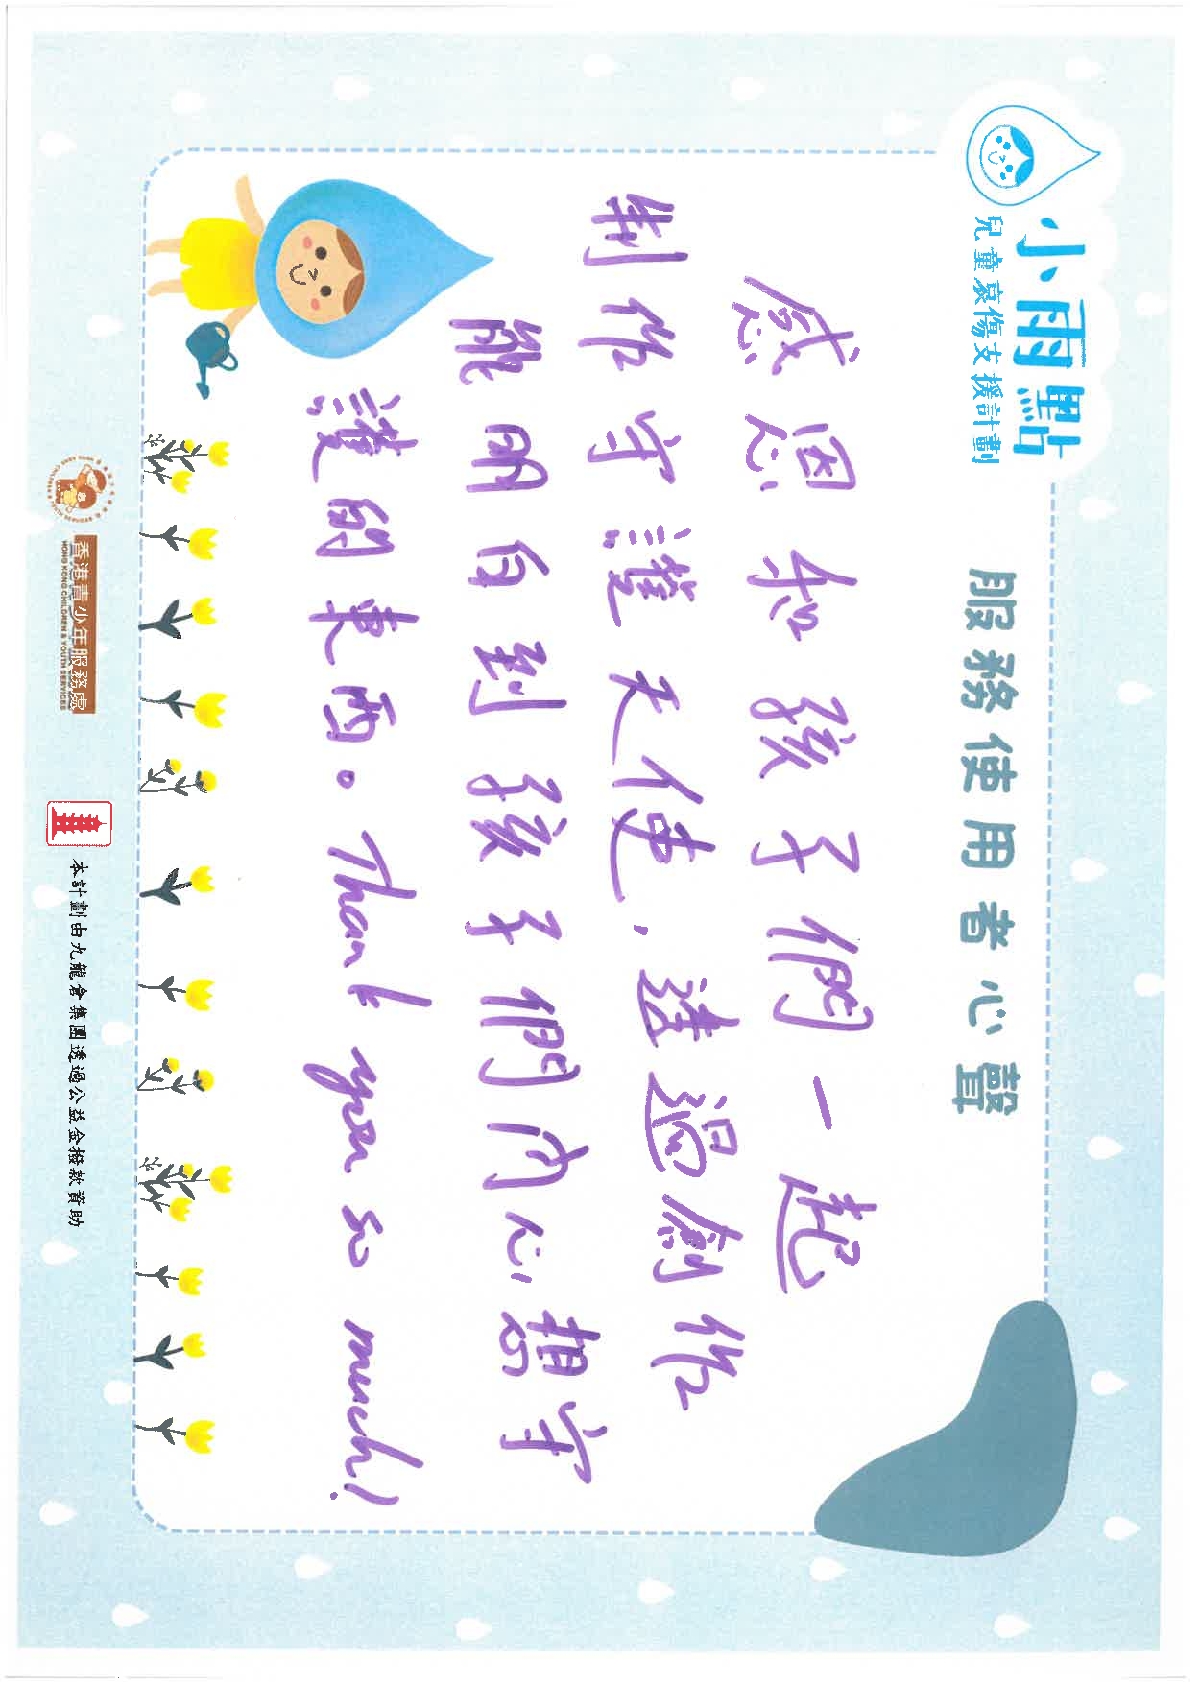 小雨點
兒童哀傷支援計劃
服務使用者心聲
感恩和孩子們一起
制作守護天使,透過創作
能明白到孩子們內心想守
護的東西。Thank you so much!
香港青少年服務處
HONG KONG CHILDREN & YOUTH SERVICES
本計劃由九龍倉集團透過公益金撥款資助